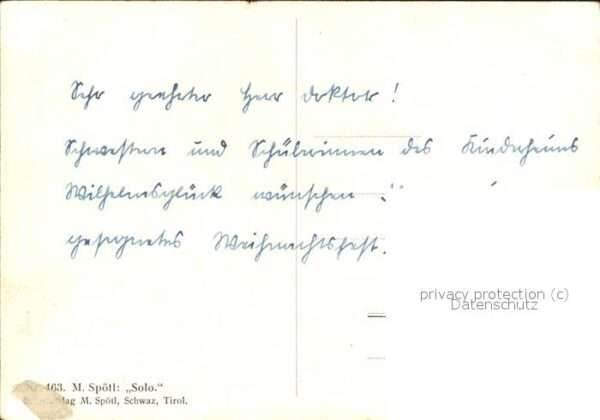 Sehr geehrter Herr Doktor!
Schwestern und Schülerinnen des Kinderheims
Wilhelmsglück wünschen
gesegnetes Weihnachtsfest.
privacy protection (c)
Datenschutz
463. M. Spötl: „Solo.“
M. Spötl, Schwaz, Tirol.